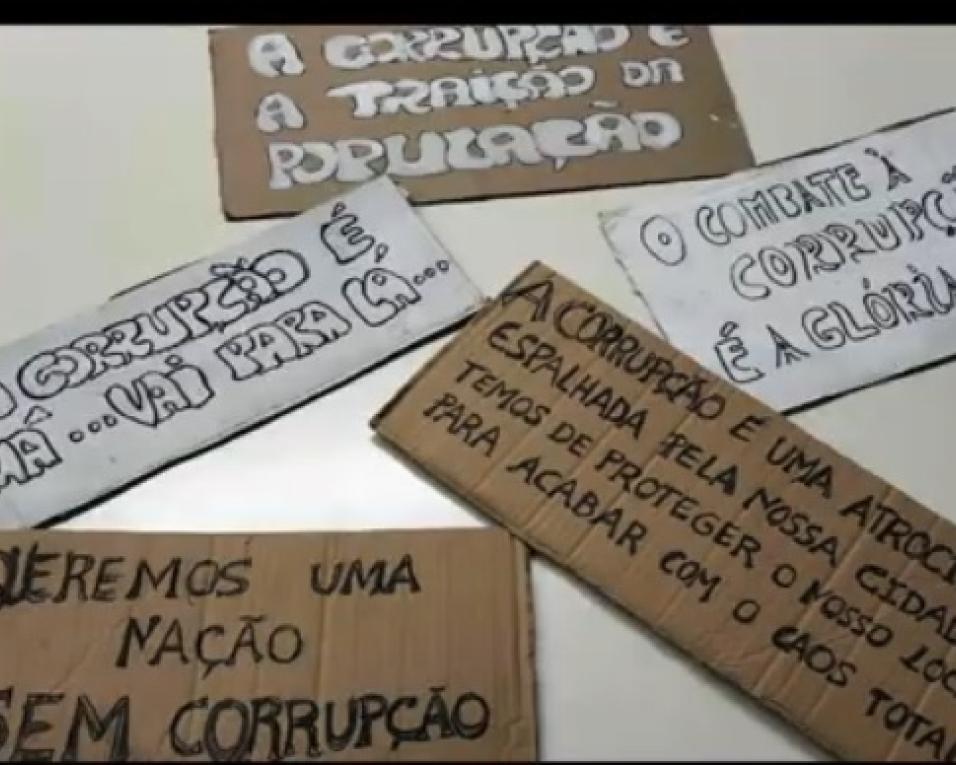 A CORRUPÇÃO É
A TRAIÇÃO DA
POPULAÇÃO
O COMBATE À
CORRUPÇÃ
É A GLÓRIA
CORRUPÇÃO É,
MÁ...VAI PARA LÁ...
A CORRUPÇÃO É UMA ATROCI
ESPALHADA PELA NOSSA CIDAD
TEMOS DE PROTEGER O NOSSO LOC
PARA ACABAR COM O CAOS TOTAL
QUEREMOS UMA
NAÇÃO
SEM CORRUPÇÃO